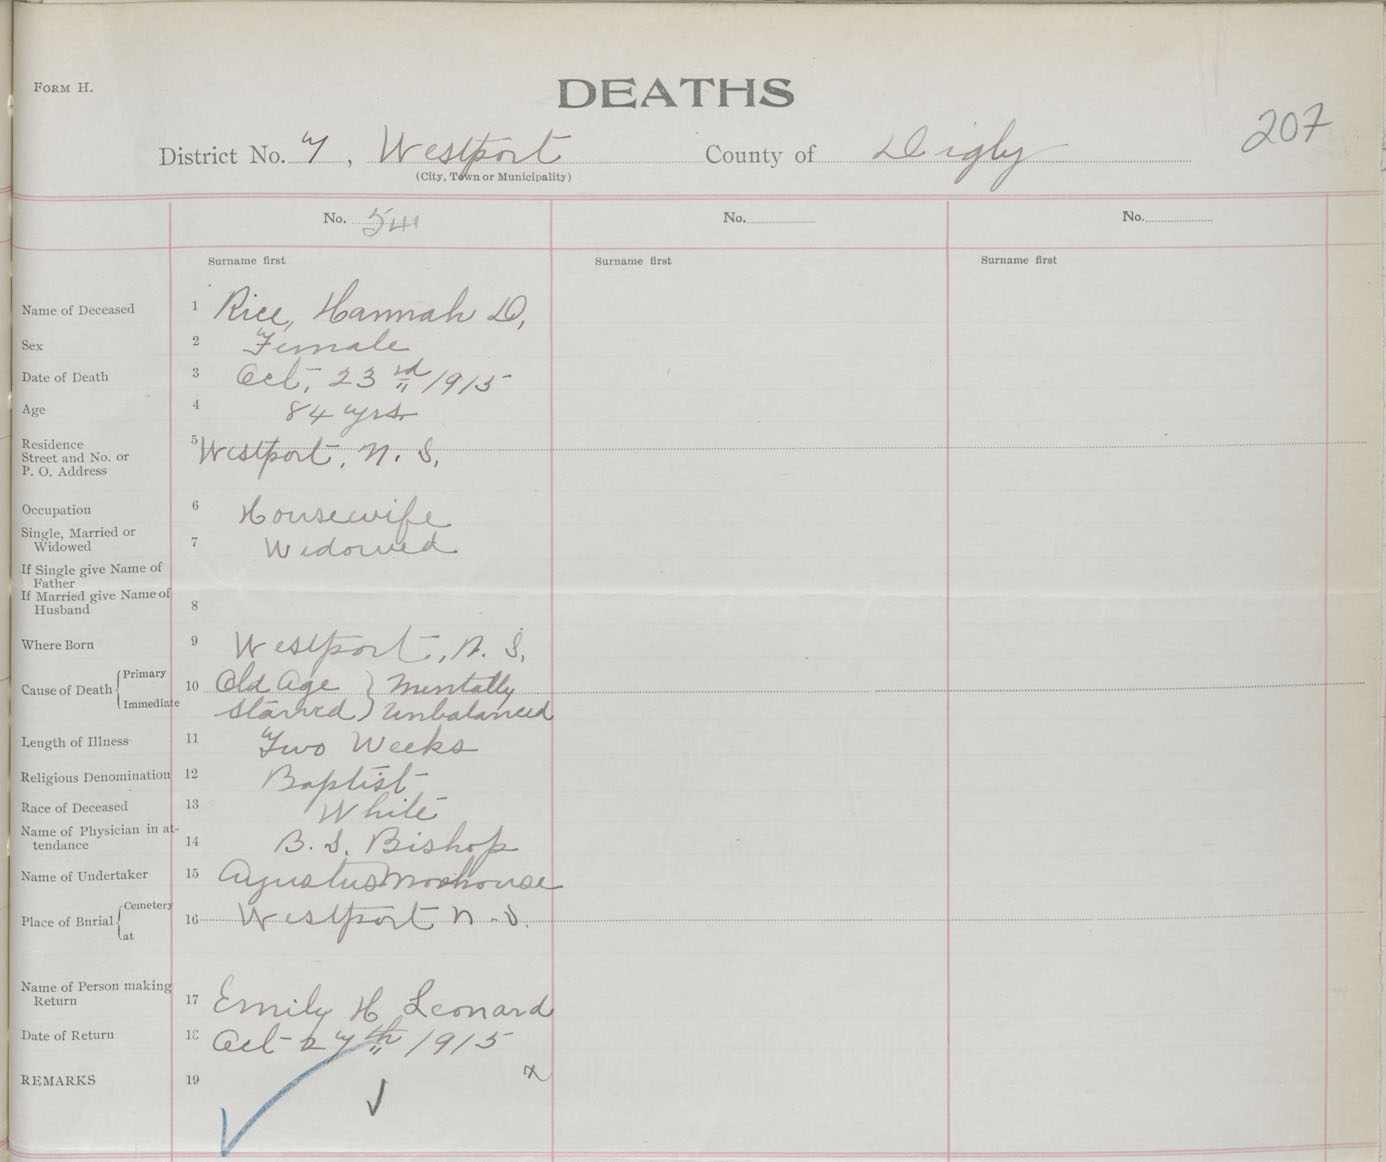 FORM H.
DEATHS
207
District No. 7, Westport County of Digby
(City, Town or Municipality)
No. 541 No. No.
Surname first Surname first Surname first
Name of Deceased 1 Rice, Hannah D,
Sex 2 Female
Date of Death 3 Oct, 23rd 1915
Age 4 84 yrs
Residence 5 Westport, N. S,
Street and No. or
P. O. Address
Occupation 6 Housewife
Single, Married or
Widowed 7 Widowed
If Single give Name of
Father
If Married give Name of
Husband 8
Where Born 9 Westport, N. S,
Cause of Death { Primary 10 Old Age } Mentally
Immediate Starved } Unbalanced
Length of Illness 11 Two Weeks
Religious Denomination 12 Baptist
Race of Deceased 13 White
Name of Physician in at-
tendance 14 B. S. Bishop
Name of Undertaker 15 Agustus Morhouse
Place of Bnrial { Cemetery 16 Westport N.S.
at
Name of Person making
Return 17 Emily H Leonard
Date of Return 18 Oct 27th 1915
REMARKS 19 x